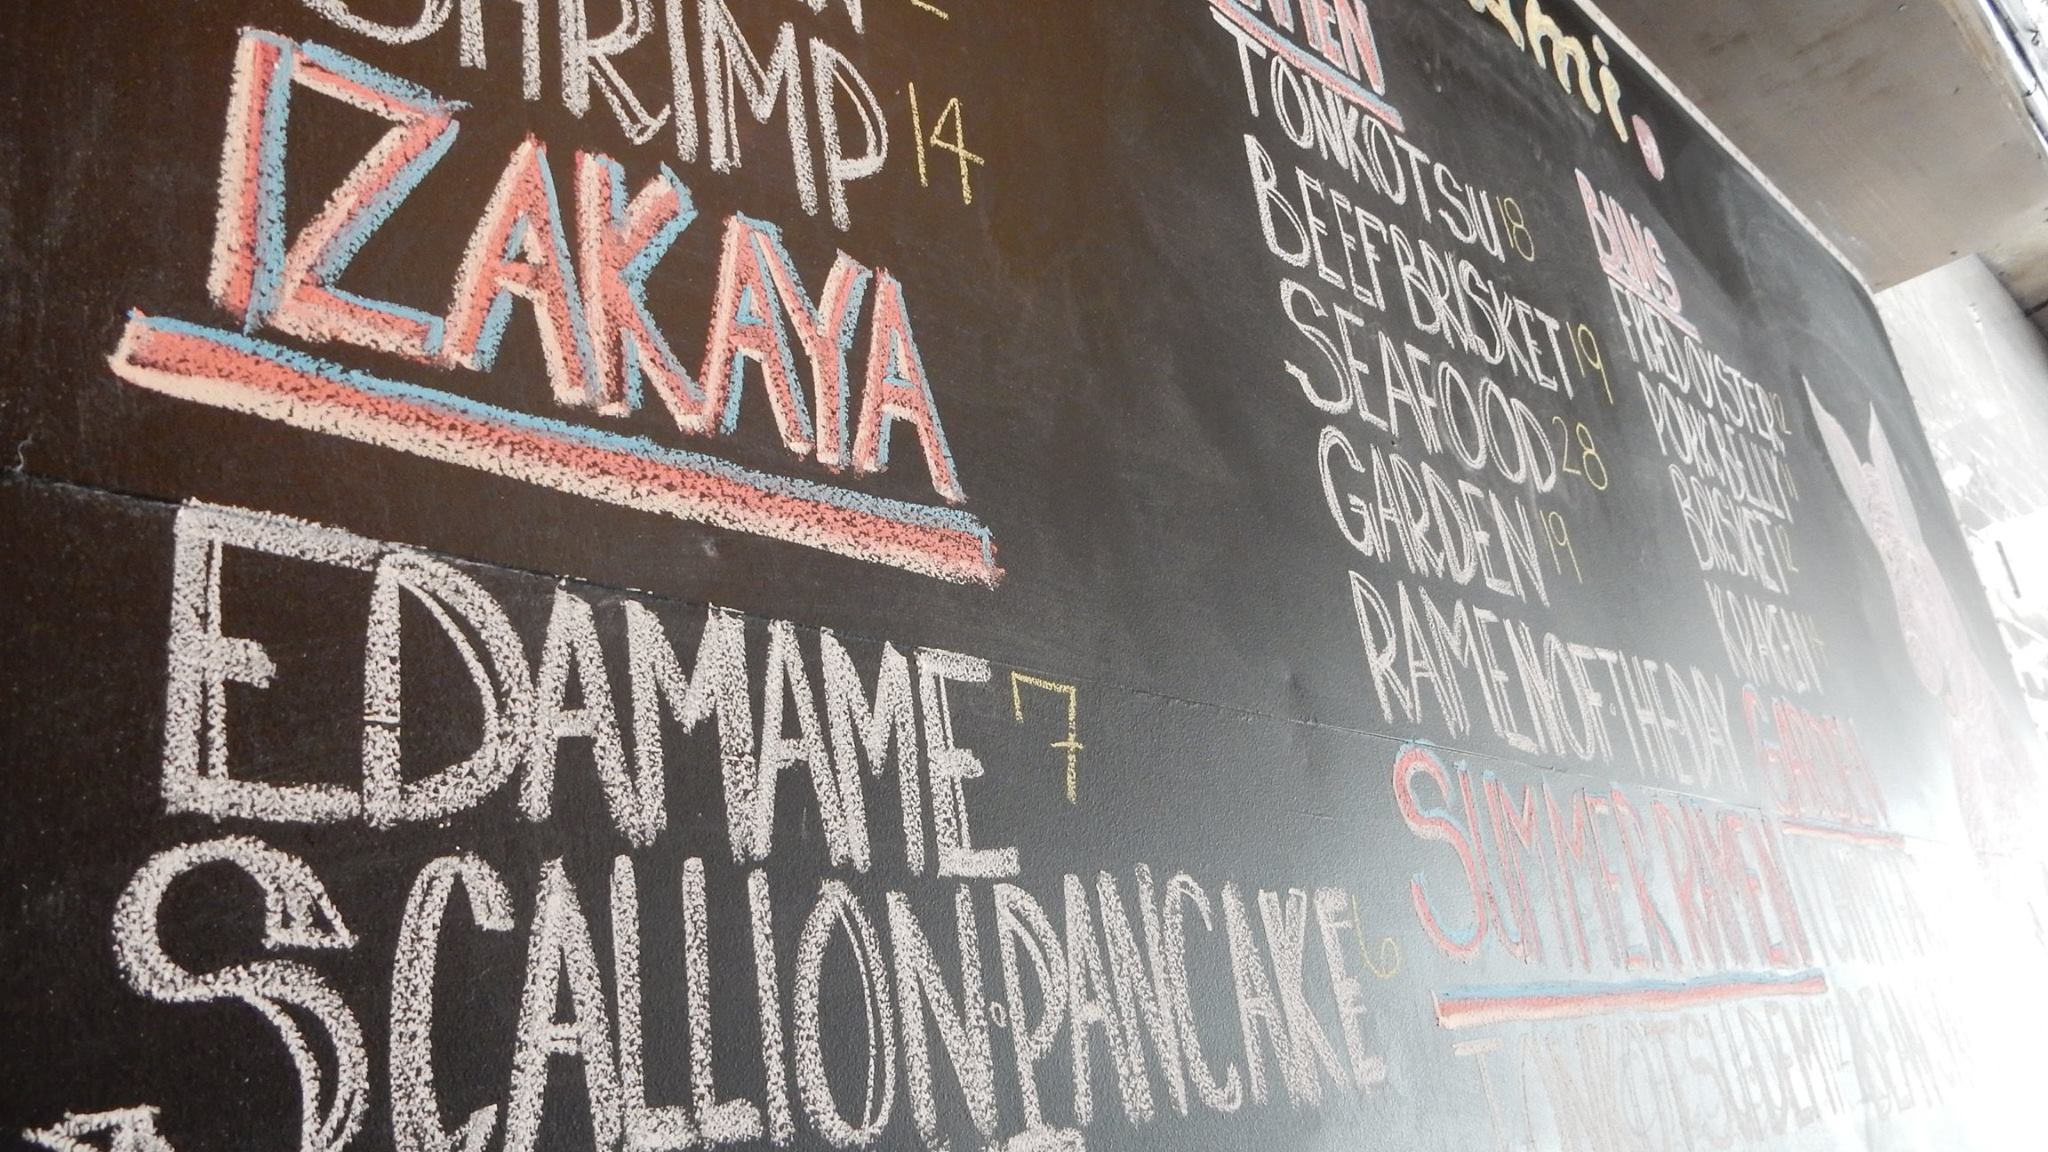 SHRIMP 14
IZAKAYA
EDAMAME 7
SCALLION PANCAKE 6
RAMEN
TONKOTSU 18
BEEF BRISKET 19
SEAFOOD 28
GARDEN 19
RAMEN OF THE DAY
SUMMER RAMEN
BUNS
FRIED OYSTER 12
PORK BELLY 11
BRISKET 12
KRAKEN 14
GARDEN